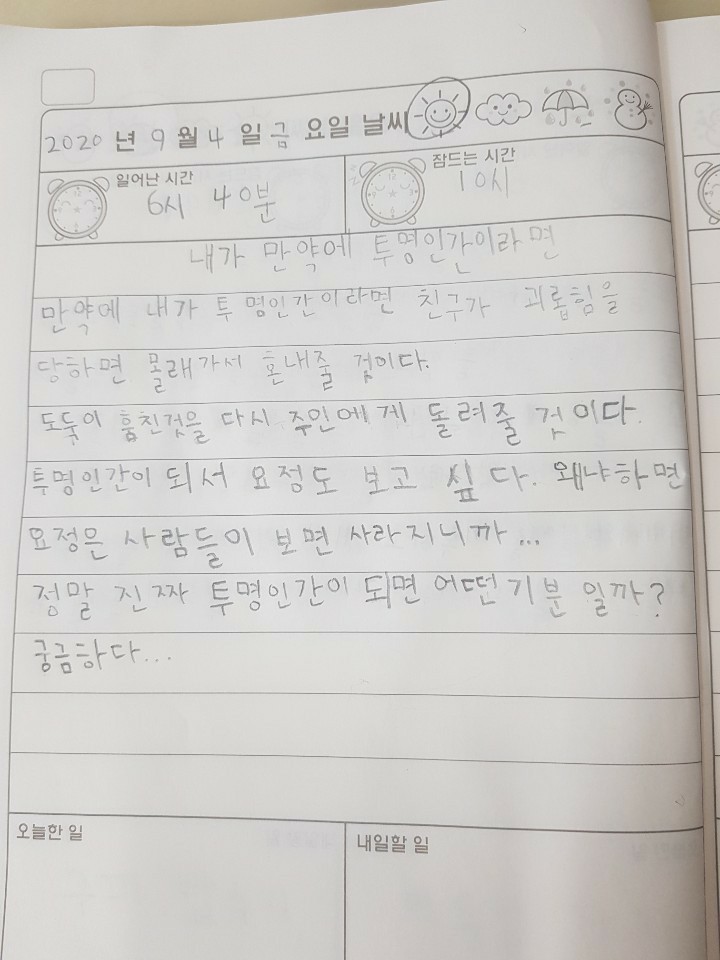 2020 년 9 월 4 일 금 요일 날씨
일어난 시간
6시 40분
잠드는 시간
10시
내가 만약에 투명인간이라면
만약에 내가 투명인간이라면 친구가 괴롭힘을
당하면 몰래가서 혼내줄 것이다.
도둑이 훔친것을 다시 주인에게 돌려줄 것이다.
투명인간이 되서 요정도 보고 싶다. 왜냐하면
요정은 사람들이 보면 사라지니까...
정말 진짜 투명인간이 되면 어떤기분 일까?
궁금하다...
오늘한 일
내일할 일